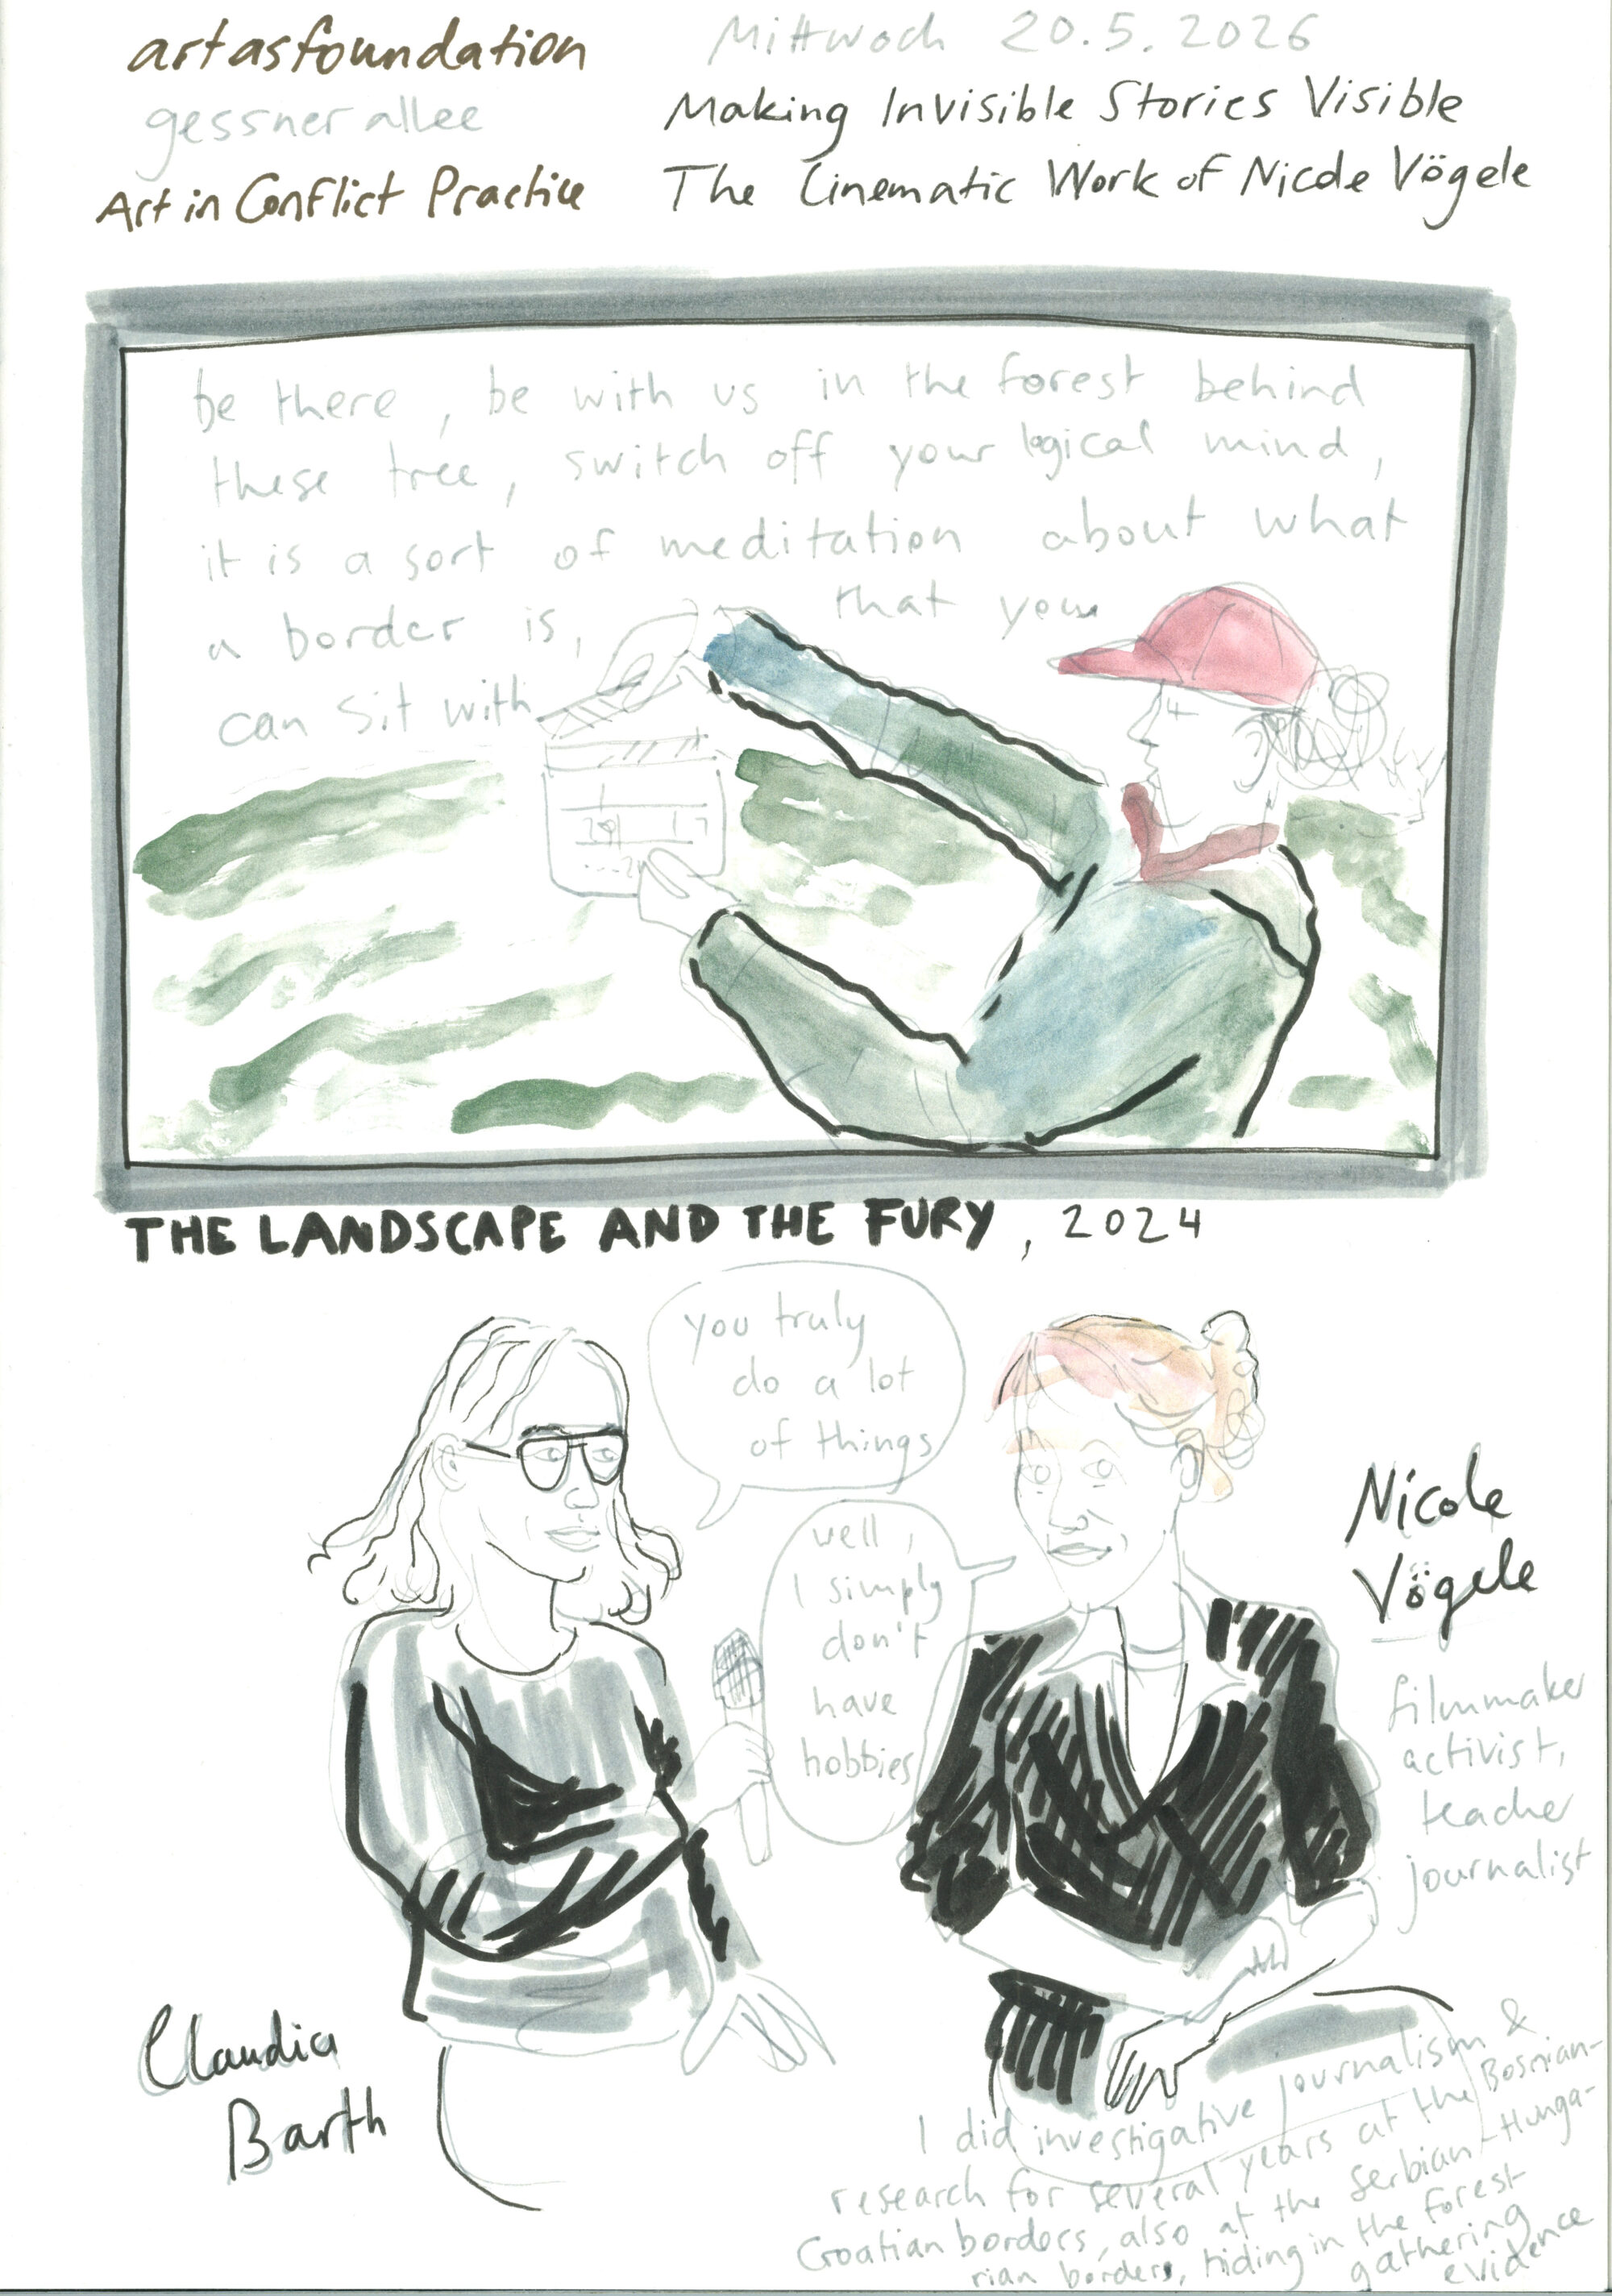 artasfoundation
gessnerallee
Art in Conflict Practice
Mittwoch 20.5.2026
Making Invisible Stories Visible
The Cinematic Work of Nicole Vögele
be there, be with us in the forest behind
these tree, switch off your logical mind,
it is a sort of meditation about what
a border is, that you
can sit with
THE LANDSCAPE AND THE FURY, 2024
you truly
do a lot
of things
well,
I simply
don't
have
hobbies
Nicole
Vögele
filmmaker
activist,
teacher
journalist
Claudia
Barth
I did investigative journalism &
research for several years at the Bosnian-
Croatian borders, also at the Serbian-Hunga-
rian borders, hiding in the forest
gathering
evidence